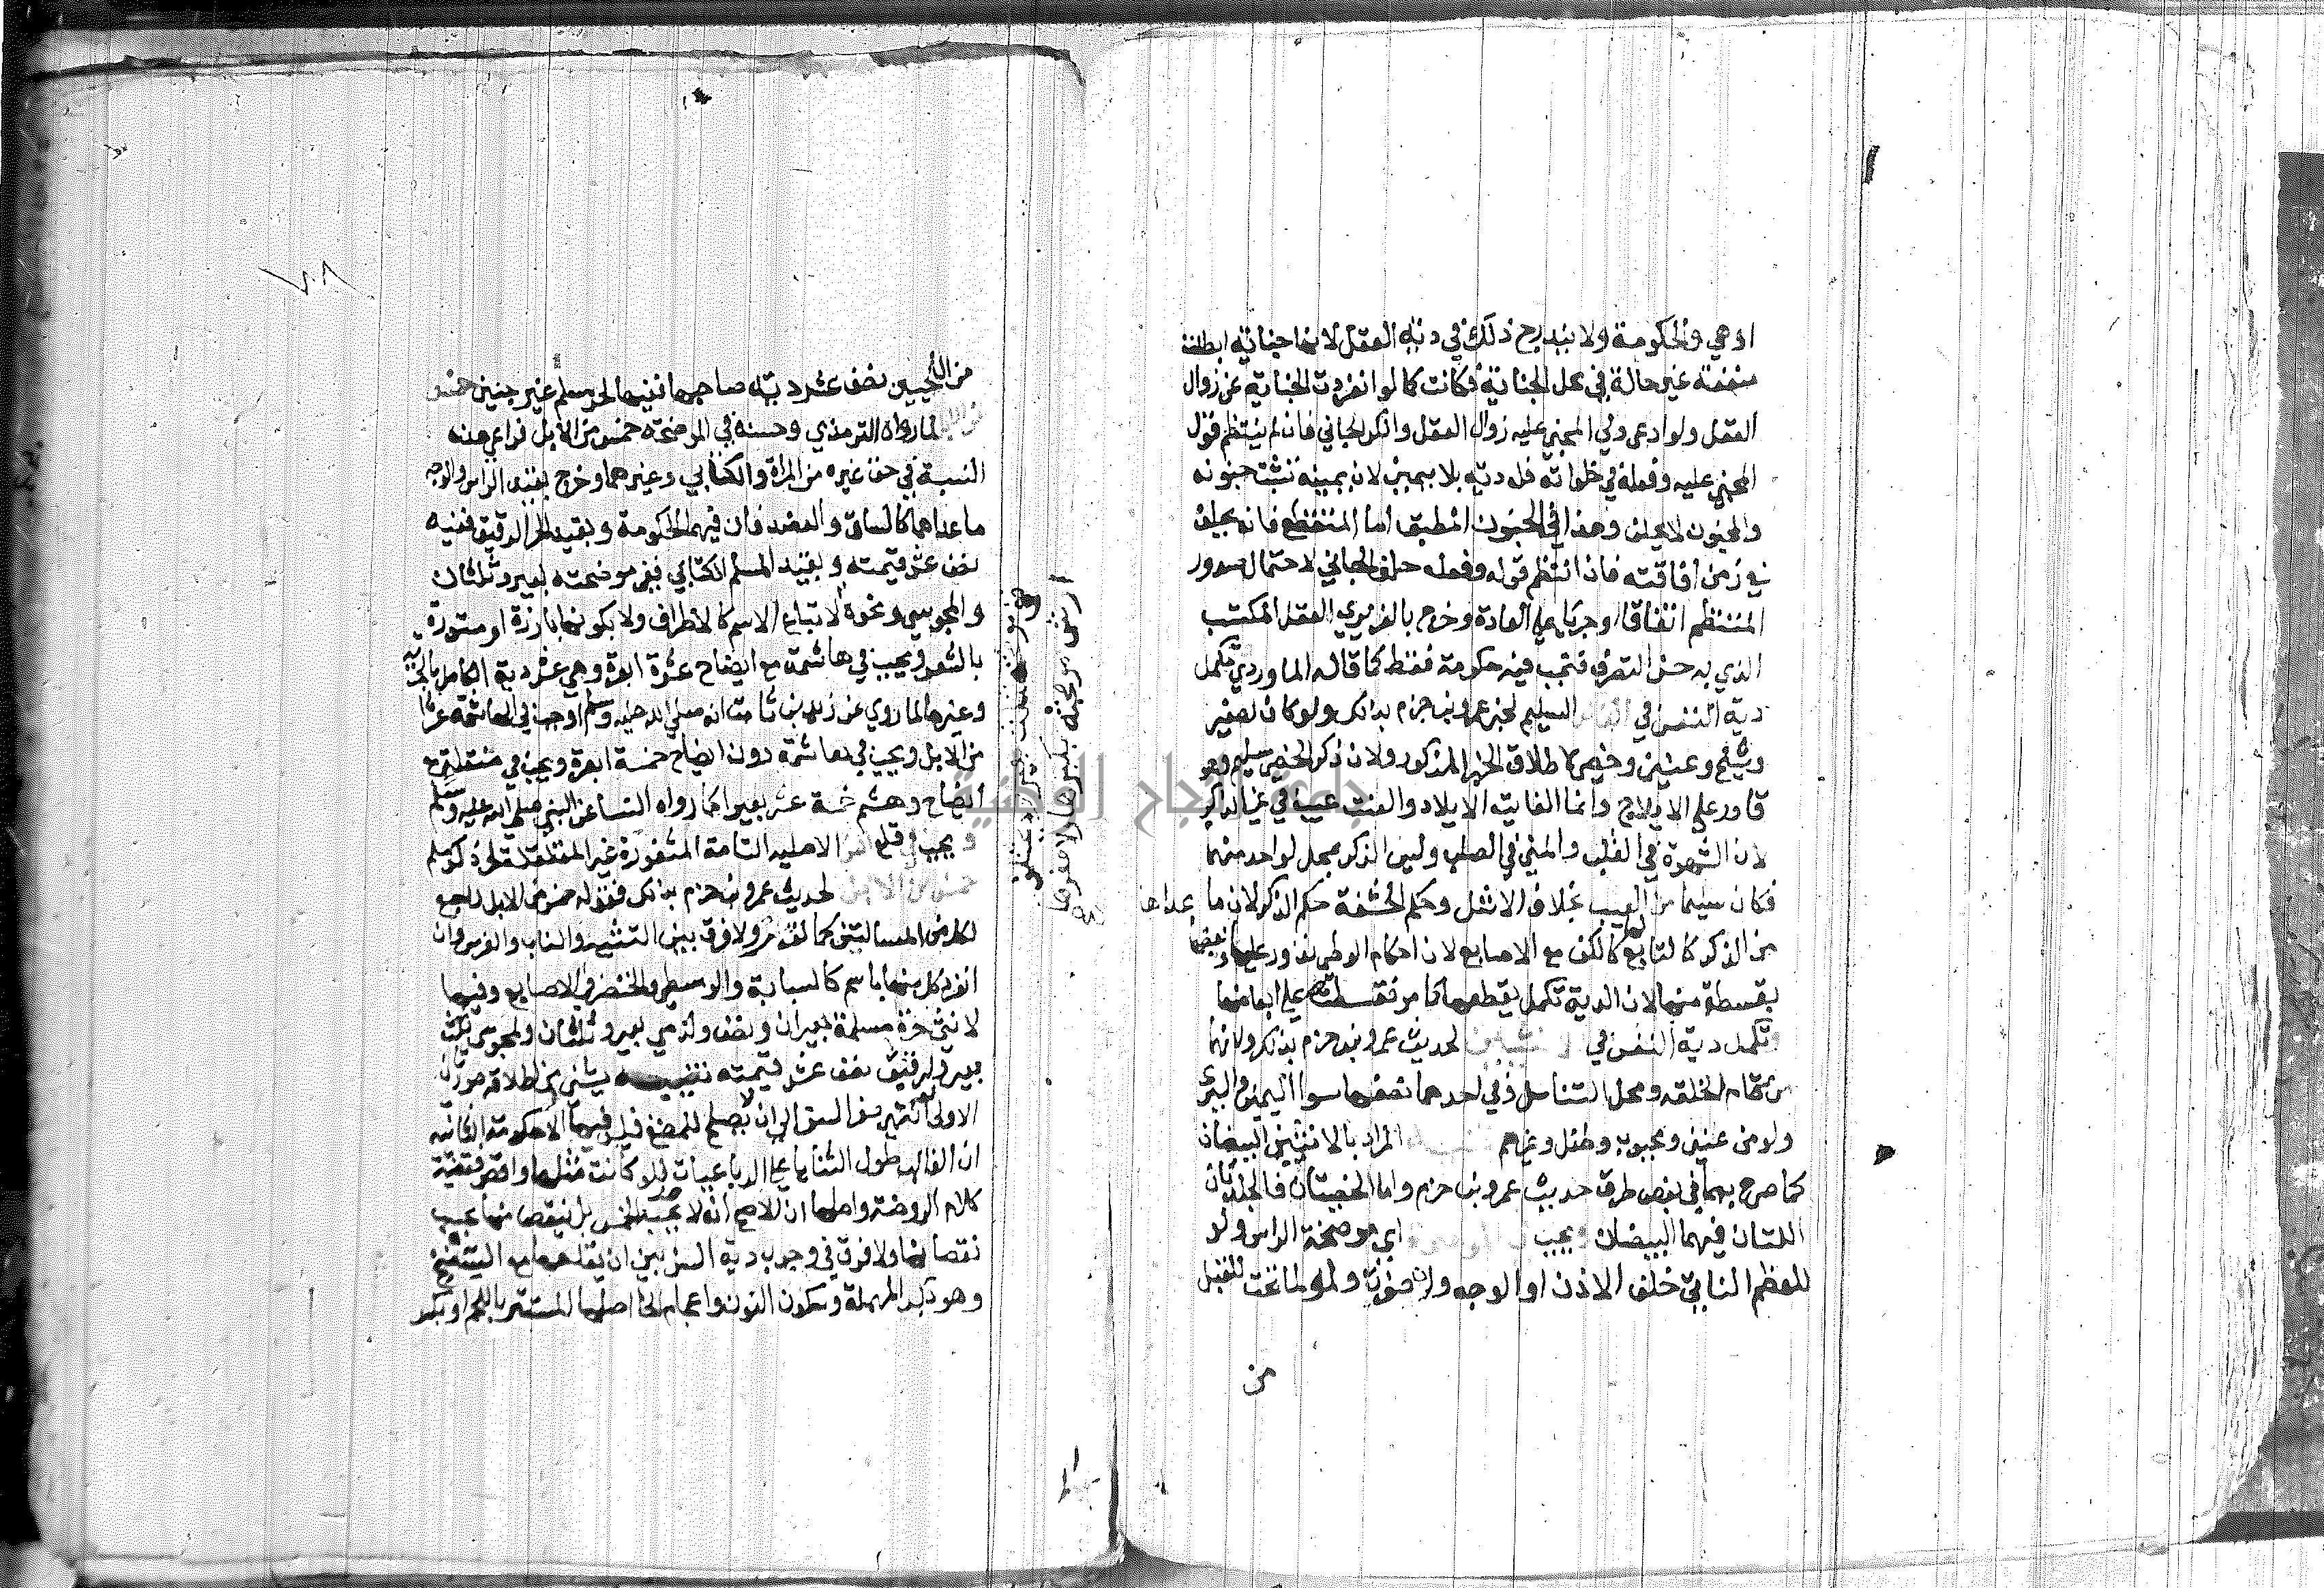 او هي والحكومة ولا يندرج ذلك في دية العقل لانها جناية ابطلت
منفعة غير حالة في محل الجناية فكانت كما لو انفردت الجناية عن زوال
العقل ولو ادعى ولي المجني عليه زوال العقل وانكر الجاني فان لم ينتظم قول
المجني عليه وفعله في خلواته فله دية بلا يمين لان يمينه تثبت جنونه
والمجنون لا يحلف وهذا في الجنون المطبق اما المنقطع فانه يحلف
في زمن افاقته فاذا انتظم قوله وفعله حلف الجاني لاحتمال صدور
المنتظم اتفاقا او جريا علي العادة وخرج بالغريزي العقل المكتسب
الذي به حسن التصرف فتجب فيه حكومة فقط كما قاله الماوردي وتكمل
دية النفس في السليم لخبر عمرو بن حزم بذلك ولو كان لصغير
وشيخ وعنين وخصي لاطلاق الخبر المذكور ولان ذكر الخصي سليم وهو
قادر علي الايلاج وانما الفايت الايلاد والعنت عيب في غير الذكر
لان الشهوة في القلب والمني في الصلب وليس الذكر محل لواحد منهما
فكان سليما من العيب بخلاف الاشل وحكم الحشفة حكم الذكر لان ما عداها
من الذكر كالتابع لها كالكف مع الاصابع لان احكام الوطي تدور عليها وبعضها
بقسطه منها لان الدية تكمل بقطعها كما مر فقسطت علي ابعاضها
وتكمل دية النفس في لحديث عمرو بن حزم بذلك ولانهما
من تمام الخلقه ومحل التناسل وفي احدهما نصفها سوا اليمين واليسرى
ولو من عنين ومجبوب وطفل وغيرهم المراد بالانثيين البيضتان
كما صرح بهما في بعض طرق حديث عمرو بن حزم واما الخصيتان فالجلدتان
اللتان فيهما البيضتان ويجب اي موضحة الراس ولو
للعظم الناتئ خلف الاذن او الوجه وان صغرت ولو لما تحت المقبل
من
من اللحيين نصف عشر دية صاحبها ففيها لحر مسلم غير جنين خمس
لما رواه الترمذي وحسنه في الموضحة خمس من الابل فراعى هذه
النسبة في حق غيره من المراة والكتابي وغيرهما وخرج بقيد الراس والوجه
ما عداهما كالساق والعضد فان فيهما الحكومة وبقيد الحر الرقيق ففيه
نصف عشر قيمته وبقيد المسلم الكتابي ففي موضحته بعير وثلثان
والمجوسي ونحوه الا تباع الاسم كالاطراف ولا بكونها بارزة او مستورة
بالشعر ويجب في هاشمة مع ايضاح عشرة ابعرة وهي عشر دية الكامل بالحرية
وغيرها لما روي عن زيد بن ثابت انه صلي الله عليه وسلم اوجب في الهاشمة عشرا
من الابل ويجب في هاشمة دون ايضاح خمسة ابعرة ويجب في منقلة مع
ايضاح وهشم خمسة عشر بعيرا كما رواه النسا عن النبي صلي الله عليه وسلم
ويجب في قلع الاصلية التامة المثغورة غير المتقلقلة لحر ذكر مسلم
خمس من الابل لحديث عمرو بن حزم بذلك فقوله خمس من الابل راجع
لكل من المسالتين كما تقرر ولا فرق بين الثنية والناب والضرس وان
انفرد كل منها باسم كالسبابة والوسطى والخنصر في الاصابع وفيها
لانثى حرة مسلمة بعيران ونصف ولذمي بعير وثلثان ولمجوسي ثلث
بعير ولرقيق نصف عشر قيمته تنبيه يستثنى من اطلاقه صورتان
الاولى لو انتهى صغر السن الى ان لا يصلح للمضغ فليس فيها الا حكومة الثانية
ان الغالب طول الثنايا علي الرباعيات فلو كانت مثلها او اقصر فقضية
كلام الروضة واصلها ان الاصح انه لا يجب الخمس بل ينقص منها بحسب
نقصانها ولا فرق في وجوب دية السن بين ان يقلعها مع السنخ
وهو بكسر المهملة وسكون النون واعجام الخا اصلها المستتر باللحم او يكسر